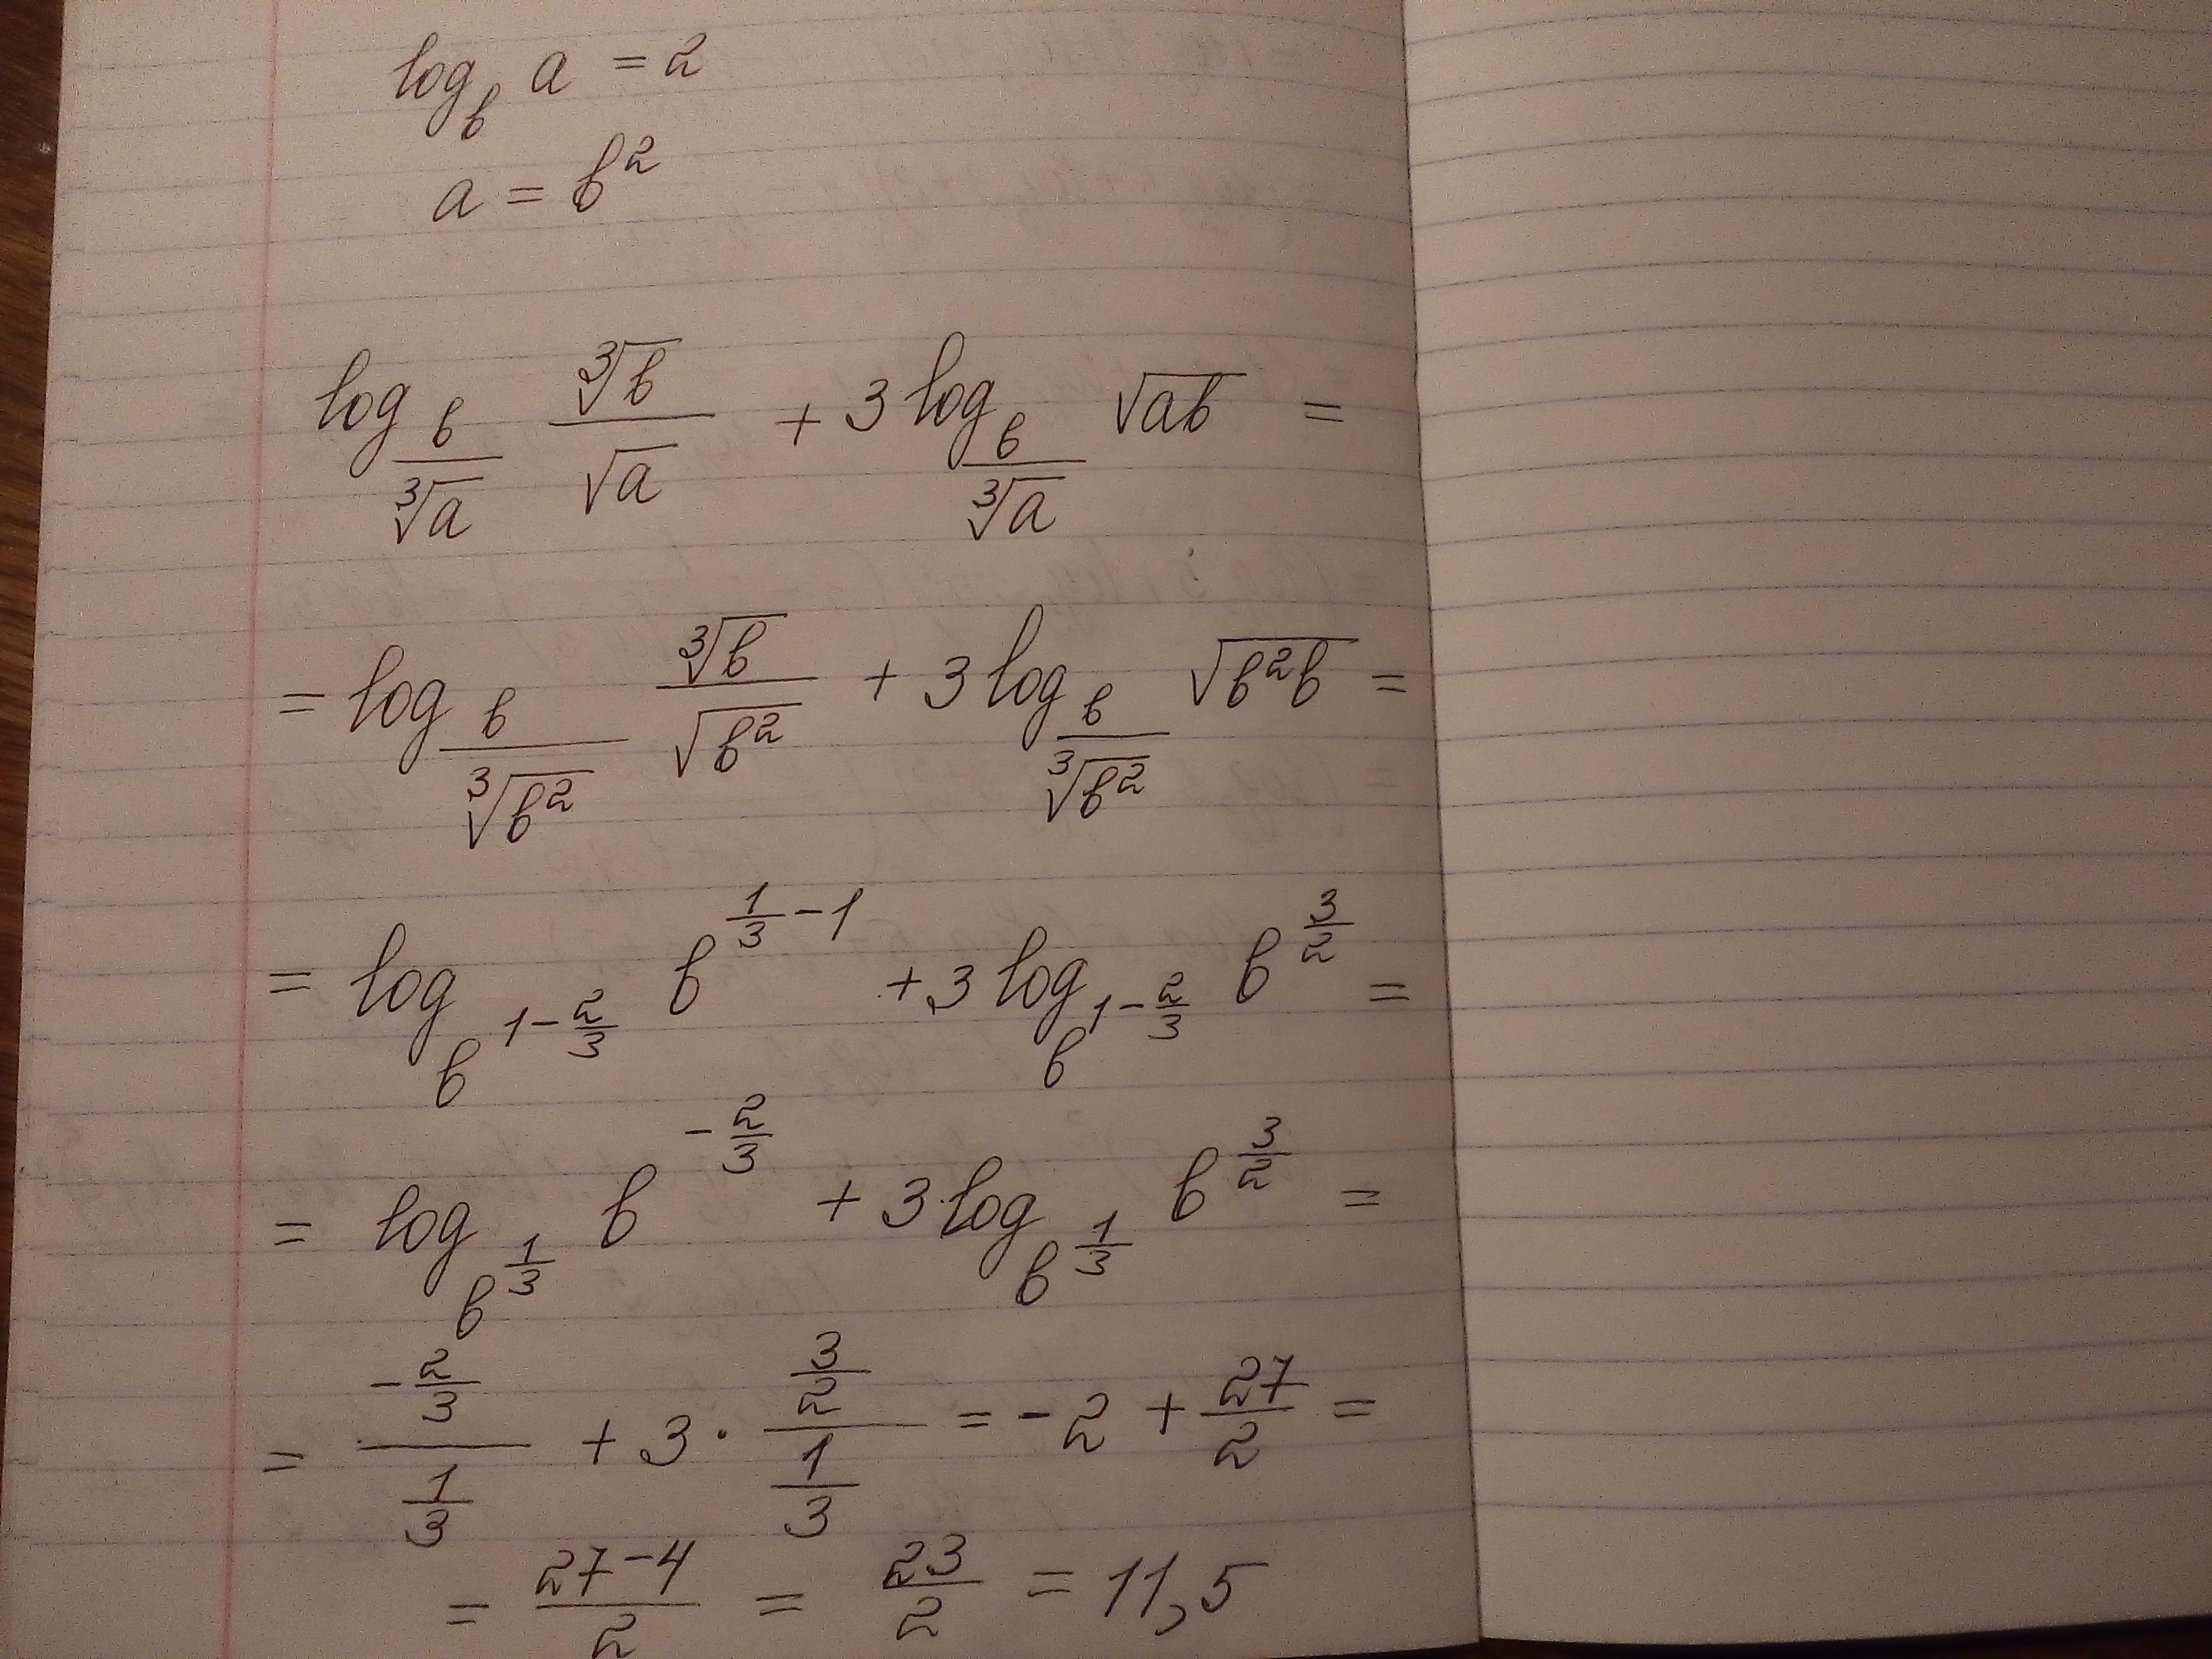 log_b a = 2
a = b²
log_{b/∛a} ∛b/√a + 3 log_{b/∛a} √ab =
= log_{b/∛b²} ∛b/√b² + 3 log_{b/∛b²} √b²b =
= log_{b^{1-2/3}} b^{1/3-1} + 3 log_{b^{1-2/3}} b^{3/2} =
= log_{b^{1/3}} b^{-2/3} + 3 log_{b^{1/3}} b^{3/2} =
= (-2/3)/(1/3) + 3 · (3/2)/(1/3) = -2 + 27/2 =
= (27-4)/2 = 23/2 = 11,5